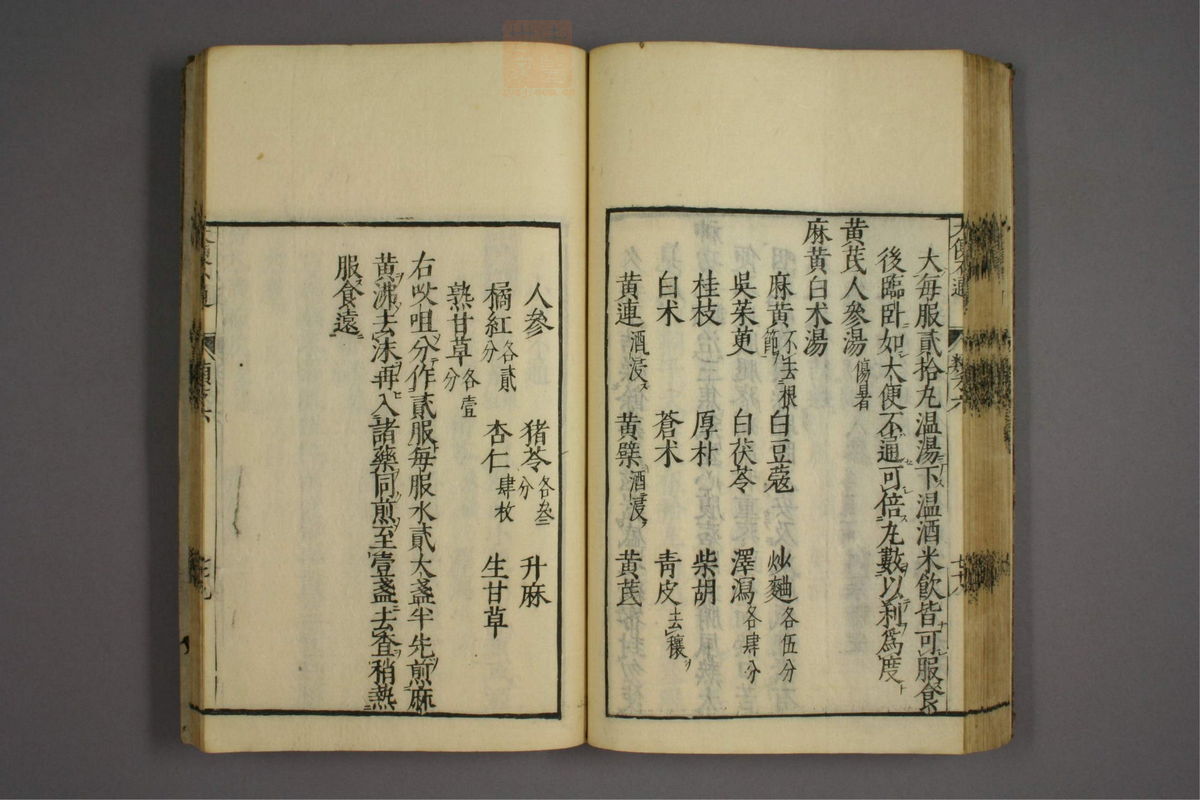 大每服貳拾丸温湯下温酒米飲皆可服食
後臨卧如大便不通可倍丸數以利爲度
黃芪人參湯 傷暑
麻黃白术湯
麻黃 不去根節 白豆蔻 炒麯 各伍分
吳茱萸 白茯苓 澤瀉 各肆分
桂枝 厚朴 柴胡
白术 蒼术 靑皮 去穰
黃連 酒浸 黃檗 酒浸 黃芪
人參 猪苓 各叁分 升麻
橘紅 各貳分 杏仁 肆枚 生甘草
熟甘草 各壹分
右㕮咀分作貳服每服水貳大盞半先煎麻
黃沸去沫再入諸藥同煎至壹盞去查稍熱
服食遠